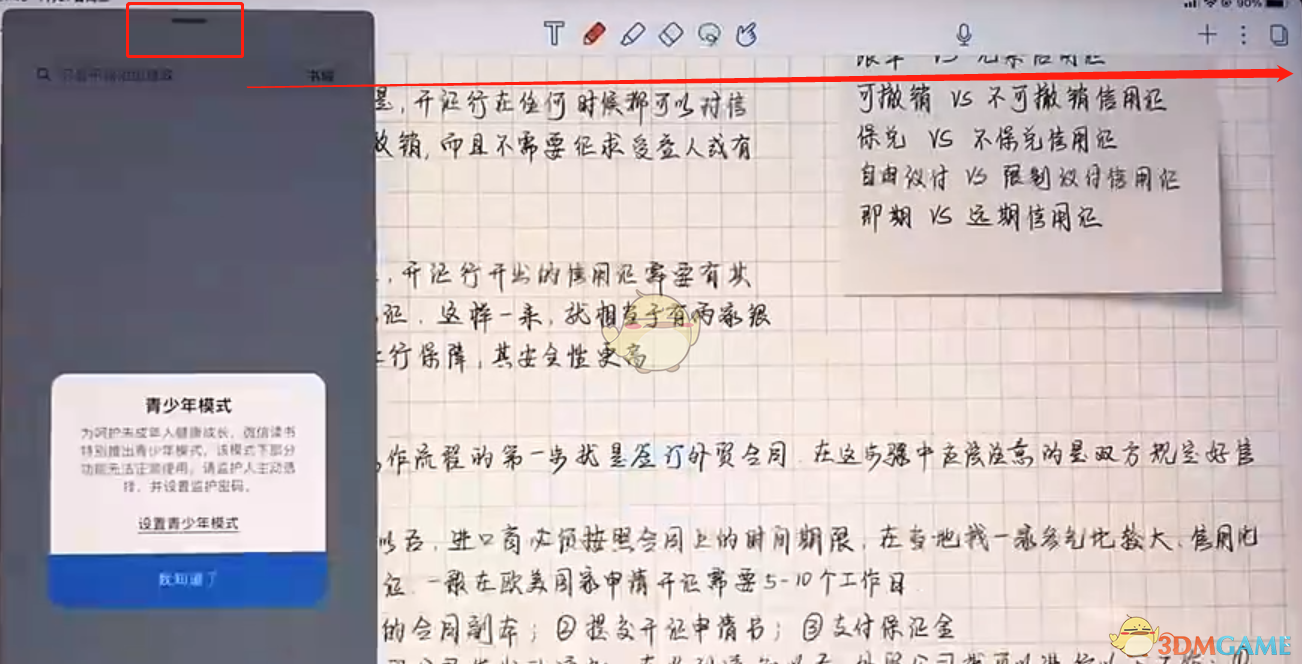 90%
T
书城
限单 VS 光票信用证
是,开证行在任何时候都可以对信
可撤销 VS 不可撤销信用证
撤销,而且不需要征求受益人或有
保兑 VS 不保兑信用证
自由议付 VS 限制议付信用证
即期 VS 远期信用证
,开证行开出的信用证需要有其
证.这样一来,就相当于有两家银
行保障,其安全性更高
青少年模式
为呵护未成年人健康成长,微信读书
特别推出青少年模式,该模式下部分
功能无法正常使用,请监护人主动选
择,并设置监护密码。
设置青少年模式
我知道了
作流程的第一步就是签订外贸合同.在这步骤中应该注意的是双方规定好售
以后,进口商必须按照合同上的时间期限,在当地找一家名气比较大、信用
证.一般在欧美国家申请开证需要5-10个工作日
的合同副本;②提交开证申请书;③支付保证金
3DMGAME